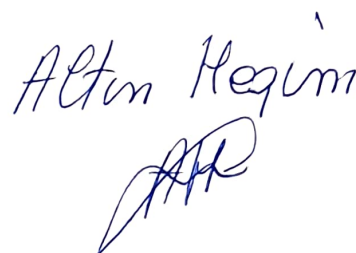 Altin Heqim